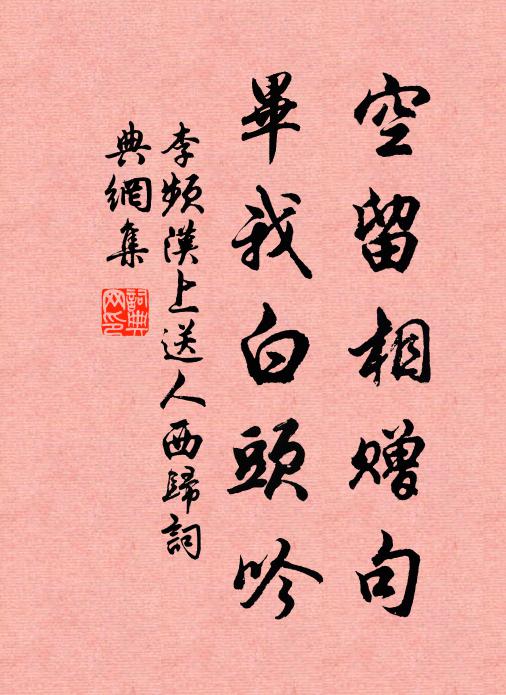 空留相贈句
畢我白頭吟
李頻漢上送人西歸詞
典網集
詞典
网印